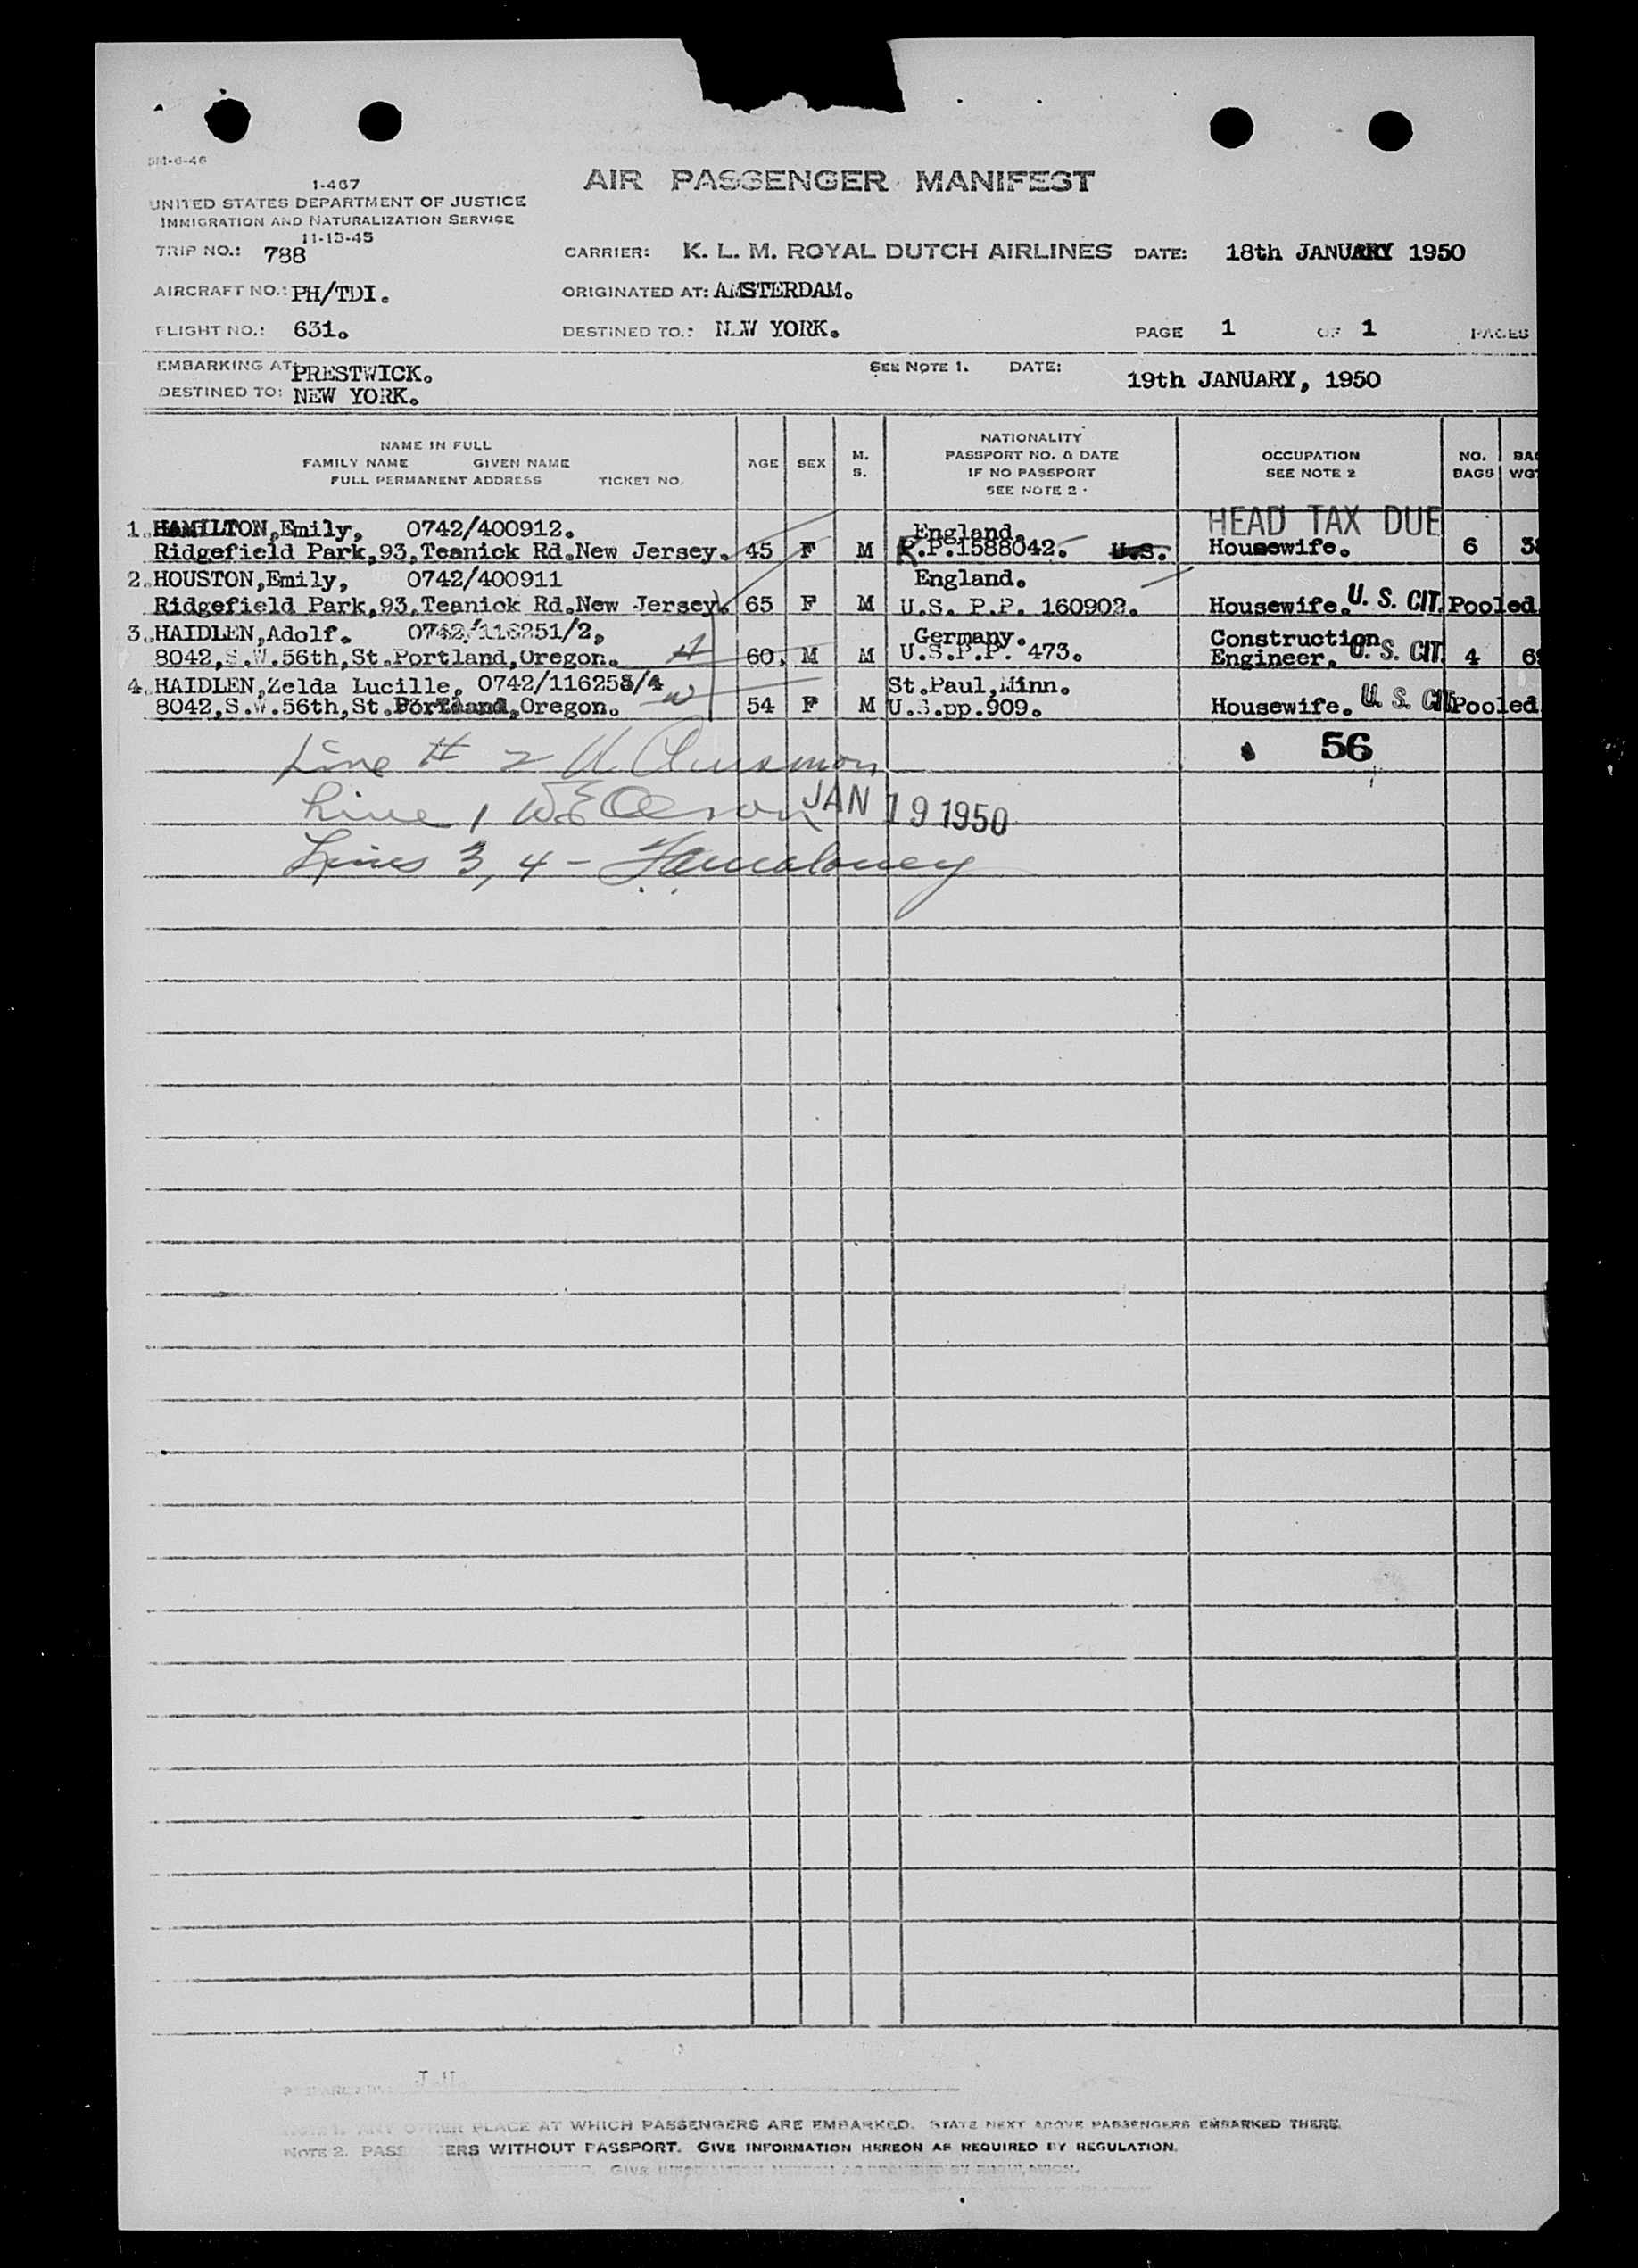 3M-6-46
I-467
UNITED STATES DEPARTMENT OF JUSTICE
IMMIGRATION AND NATURALIZATION SERVICE
11-13-45
AIR PASSENGER MANIFEST
TRIP NO.: 788
CARRIER: K. L. M. ROYAL DUTCH AIRLINES DATE: 18th JANUARY 1950
AIRCRAFT NO.: PH/TDI. ORIGINATED AT: AMSTERDAM.
FLIGHT NO.: 631. DESTINED TO.: NEW YORK. PAGE 1 OF 1 PAGES
EMBARKING AT: PRESTWICK. SEE NOTE 1. DATE: 19th JANUARY, 1950
DESTINED TO: NEW YORK.
NAME IN FULL
FAMILY NAME GIVEN NAME
FULL PERMANENT ADDRESS TICKET NO.
AGE SEX M. S.
NATIONALITY
PASSPORT NO. & DATE
IF NO PASSPORT
SEE NOTE 2
OCCUPATION
SEE NOTE 2
NO. BAGS
HEAD TAX DUE
1. HAMILTON,Emily, 0742/400912. England.
Ridgefield Park,93,Teanick Rd.New Jersey. 45 F M P.P.1588042. U.S. Housewife. 6
2. HOUSTON,Emily, 0742/400911 England.
Ridgefield Park,93,Teanick Rd.New Jersey. 65 F M U.S. P.P. 160902. Housewife. U. S. CIT. Pooled
3. HAIDLEN,Adolf. 0742/116251/2, Germany. Construction
8042,S.W.56th,St.Portland,Oregon. H 60. M M U.S.P.P. 473. Engineer. U. S. CIT. 4
4. HAIDLEN,Zelda Lucille, 0742/116253/4 St.Paul,Minn.
8042,S.W.56th,St.Portland,Oregon. W 54 F M U.S.pp.909. Housewife. U. S. CIT Pooled
56
Line # 2
Line 1
JAN 19 1950
Lines 3, 4 -
NOTE 1. ANY OTHER PLACE AT WHICH PASSENGERS ARE EMBARKED. STATE NEXT ABOVE PASSENGERS EMBARKED THERE.
NOTE 2. PASSENGERS WITHOUT PASSPORT. GIVE INFORMATION HEREON AS REQUIRED BY REGULATION.